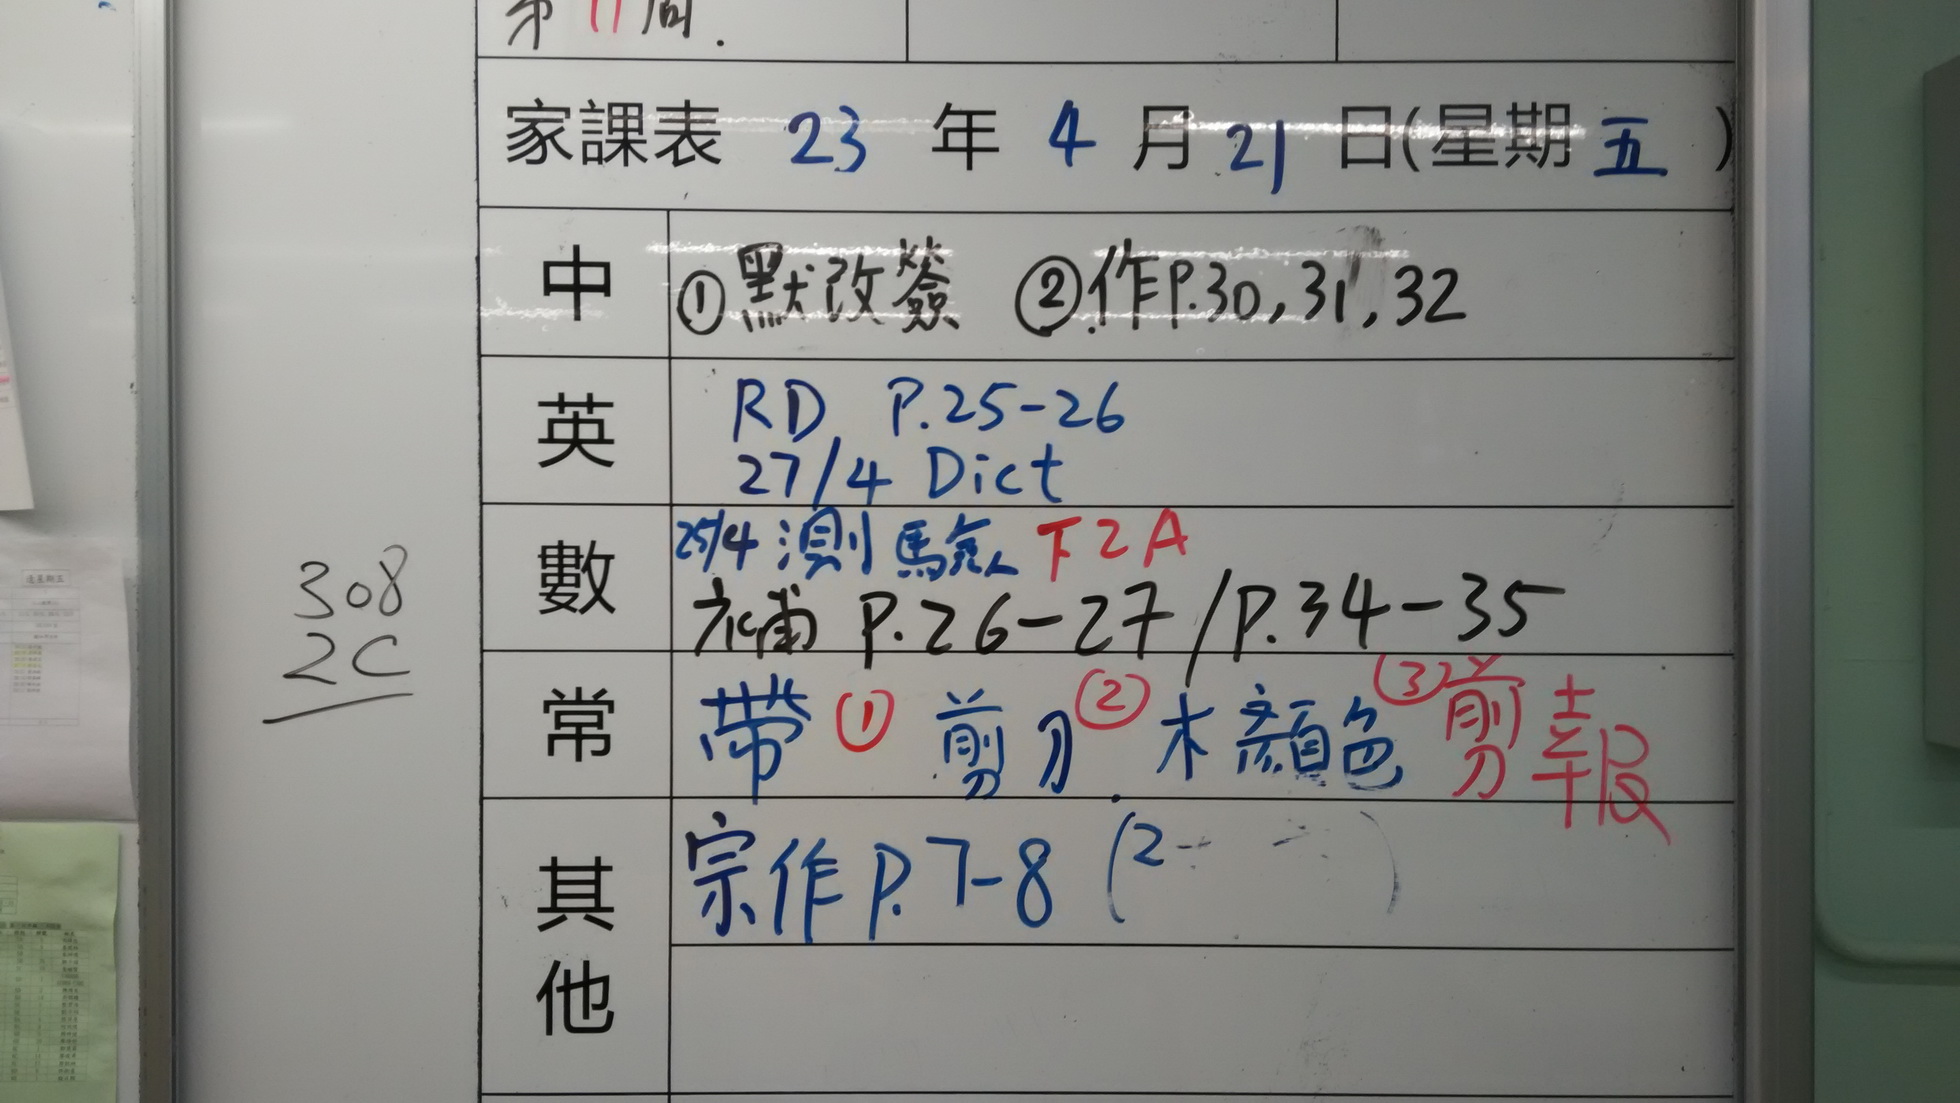 第11周.
家課表 23 年 4 月 21 日(星期 五 )
中 ①默改簽 ②作P.30,31,32
英 RD P.25-26
27/4 Dict
數 25/4 測驗 下2A
補 P.26-27/P.34-35
常 帶 ① 剪刀 ② 木顏色 ③ 剪報
其他 宗作P.7-8 (2- )
308
2C